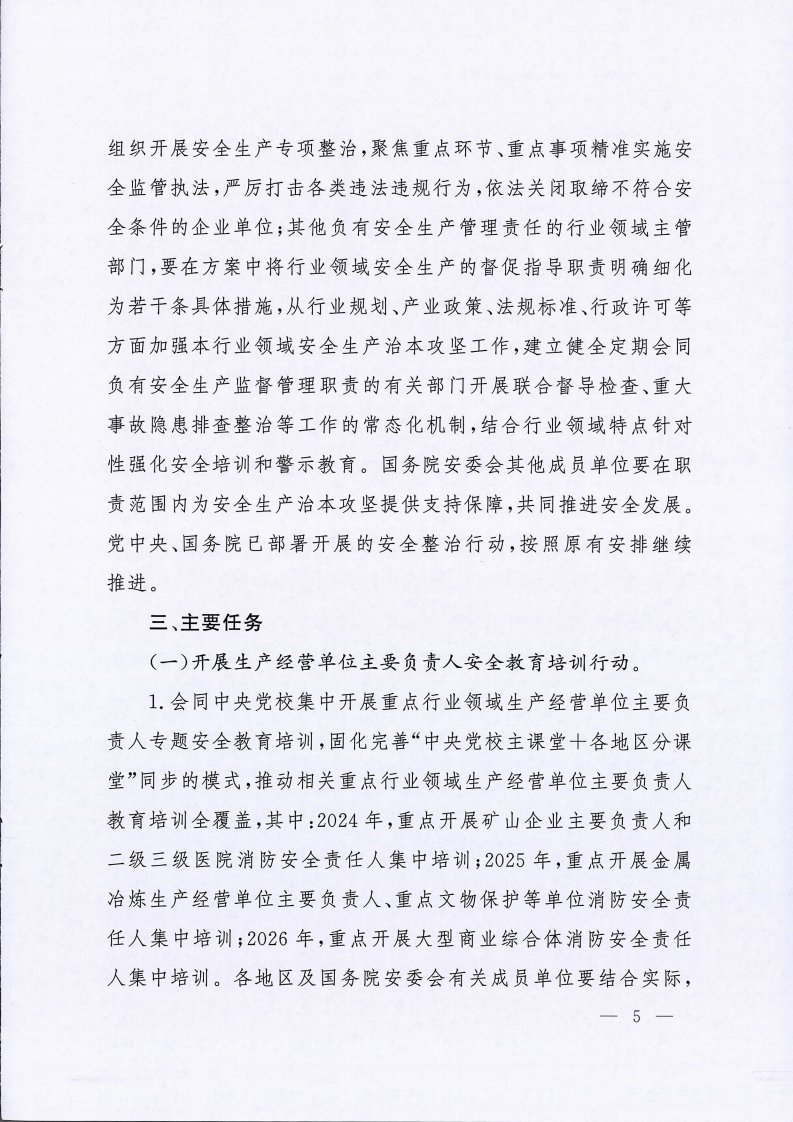 组织开展安全生产专项整治,聚焦重点环节、重点事项精准实施安
全监管执法,严厉打击各类违法违规行为,依法关闭取缔不符合安
全条件的企业单位;其他负有安全生产管理责任的行业领域主管
部门,要在方案中将行业领域安全生产的督促指导职责明确细化
为若干条具体措施,从行业规划、产业政策、法规标准、行政许可等
方面加强本行业领域安全生产治本攻坚工作,建立健全定期会同
负有安全生产监督管理职责的有关部门开展联合督导检查、重大
事故隐患排查整治等工作的常态化机制,结合行业领域特点针对
性强化安全培训和警示教育。国务院安委会其他成员单位要在职
责范围内为安全生产治本攻坚提供支持保障,共同推进安全发展。
党中央、国务院已部署开展的安全整治行动,按照原有安排继续
推进。
三、主要任务
(一)开展生产经营单位主要负责人安全教育培训行动。
1. 会同中央党校集中开展重点行业领域生产经营单位主要负
责人专题安全教育培训,固化完善“中央党校主课堂+各地区分课
堂”同步的模式,推动相关重点行业领域生产经营单位主要负责人
教育培训全覆盖,其中:2024 年,重点开展矿山企业主要负责人和
二级三级医院消防安全责任人集中培训;2025 年,重点开展金属
冶炼生产经营单位主要负责人、重点文物保护等单位消防安全责
任人集中培训;2026 年,重点开展大型商业综合体消防安全责任
人集中培训。各地区及国务院安委会有关成员单位要结合实际,
— 5 —